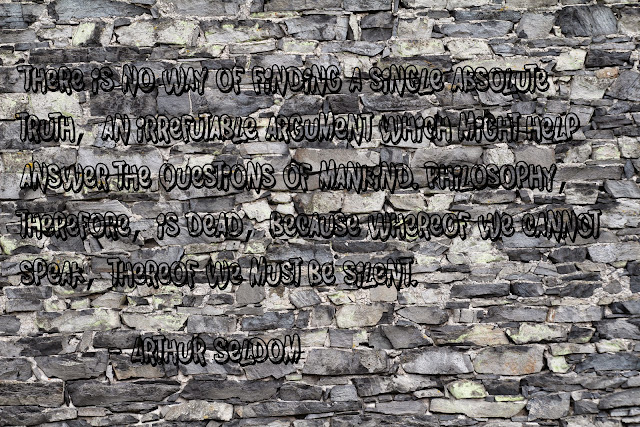 There is no way of finding a single absolute
truth, an irrefutable argument which might help
answer the questions of mankind. Philosophy,
therefore, is dead, because whereof we cannot
speak, thereof we must be silent.
- Arthur Seldom